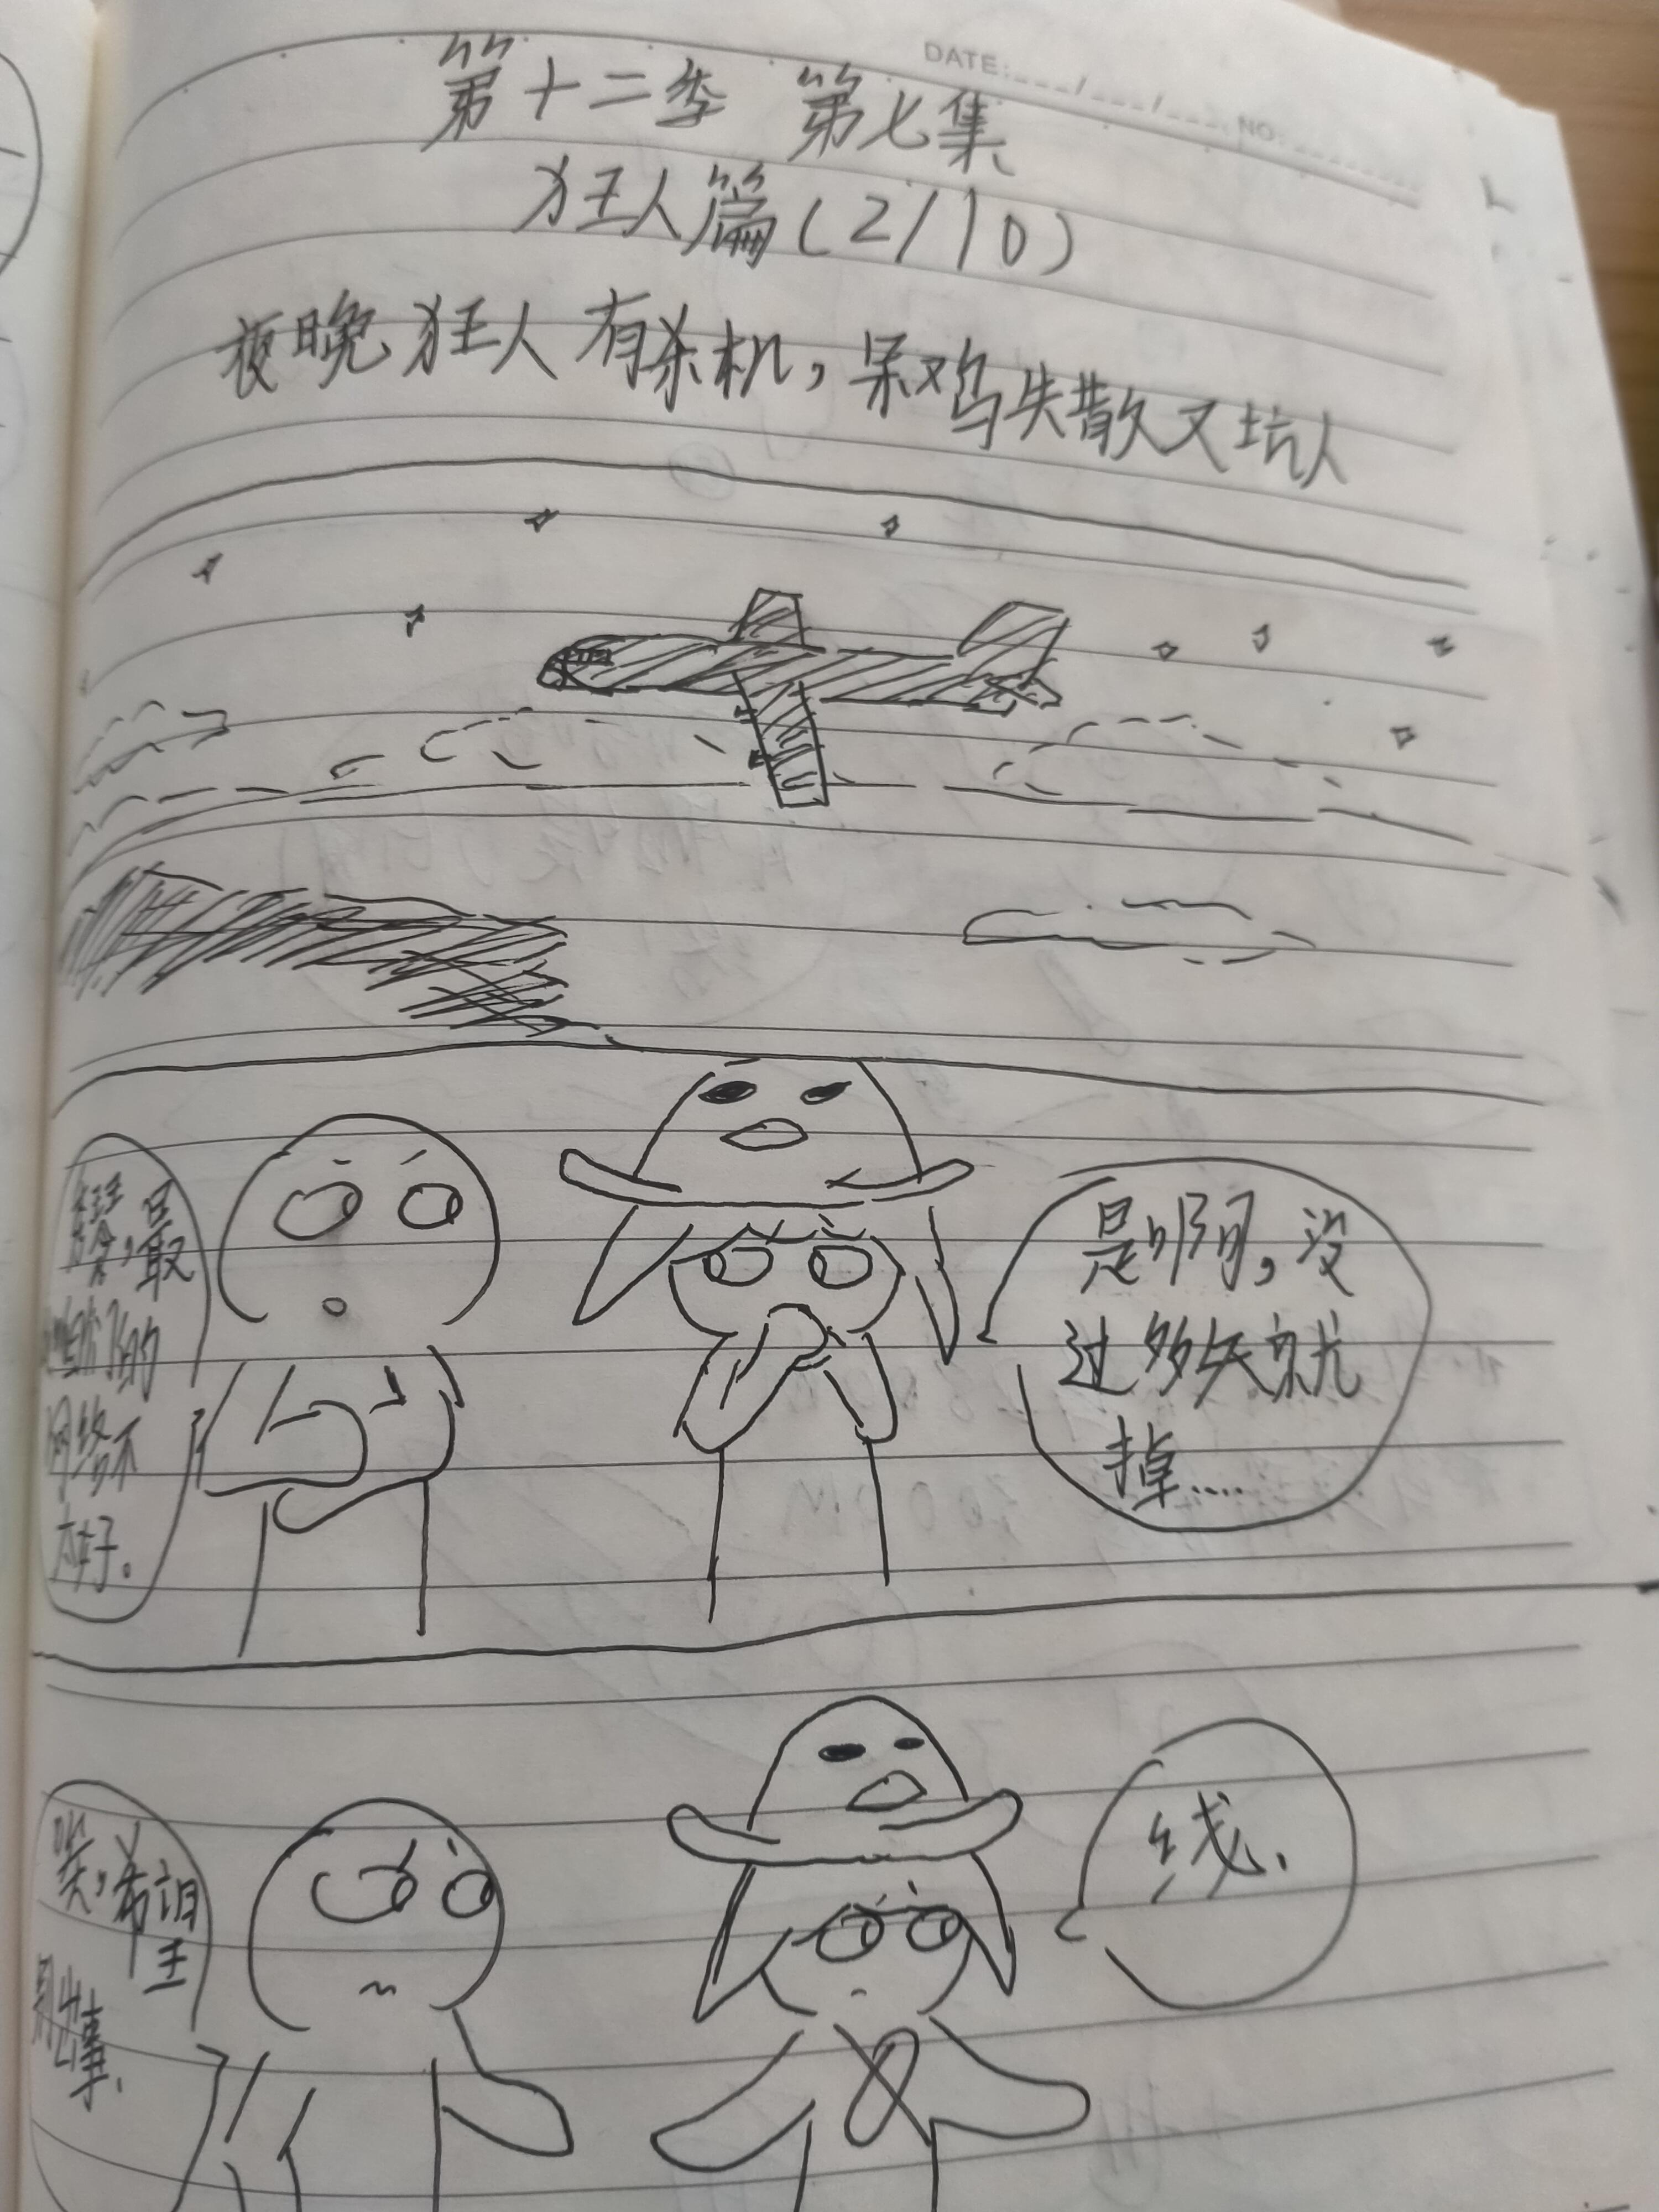 DATE: / / NO:
第十二季 第七集
狂人篇(2/10)
夜晚狂人有杀机,呆鸡失散又坑人
,最
的
网络不
太好。
是啊,没
过多久就
掉....
唉,希望
别出事.
线.